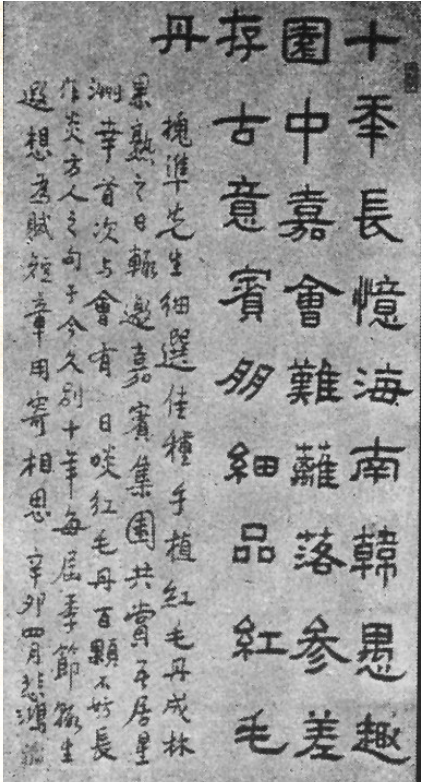 十年長憶海南韓愚趣
園中嘉會難蘺落參差
存古意賓朋細品紅毛
丹
槐準先生細選佳種手植紅毛丹成林
果熟之日輒邀嘉賓集園共賞予居星
洲幸首次与會有 日啖紅毛丹百顆不妨長
作炎方人之句于今久別十年每屆季節輒生
遐想為賦短章用寄相思 辛卯四月悲鴻